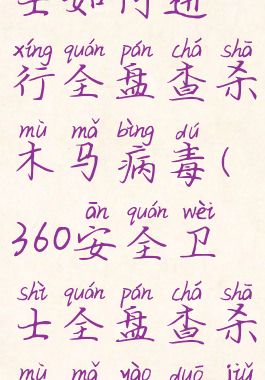 士如何进
xíng quán pán chá shā
行全盘查杀
mù mǎ bìng dú
木马病毒(
ān quán wèi
360安全卫
shì quán pán chá shā
士全盘查杀
mù mǎ yào duō jiǔ